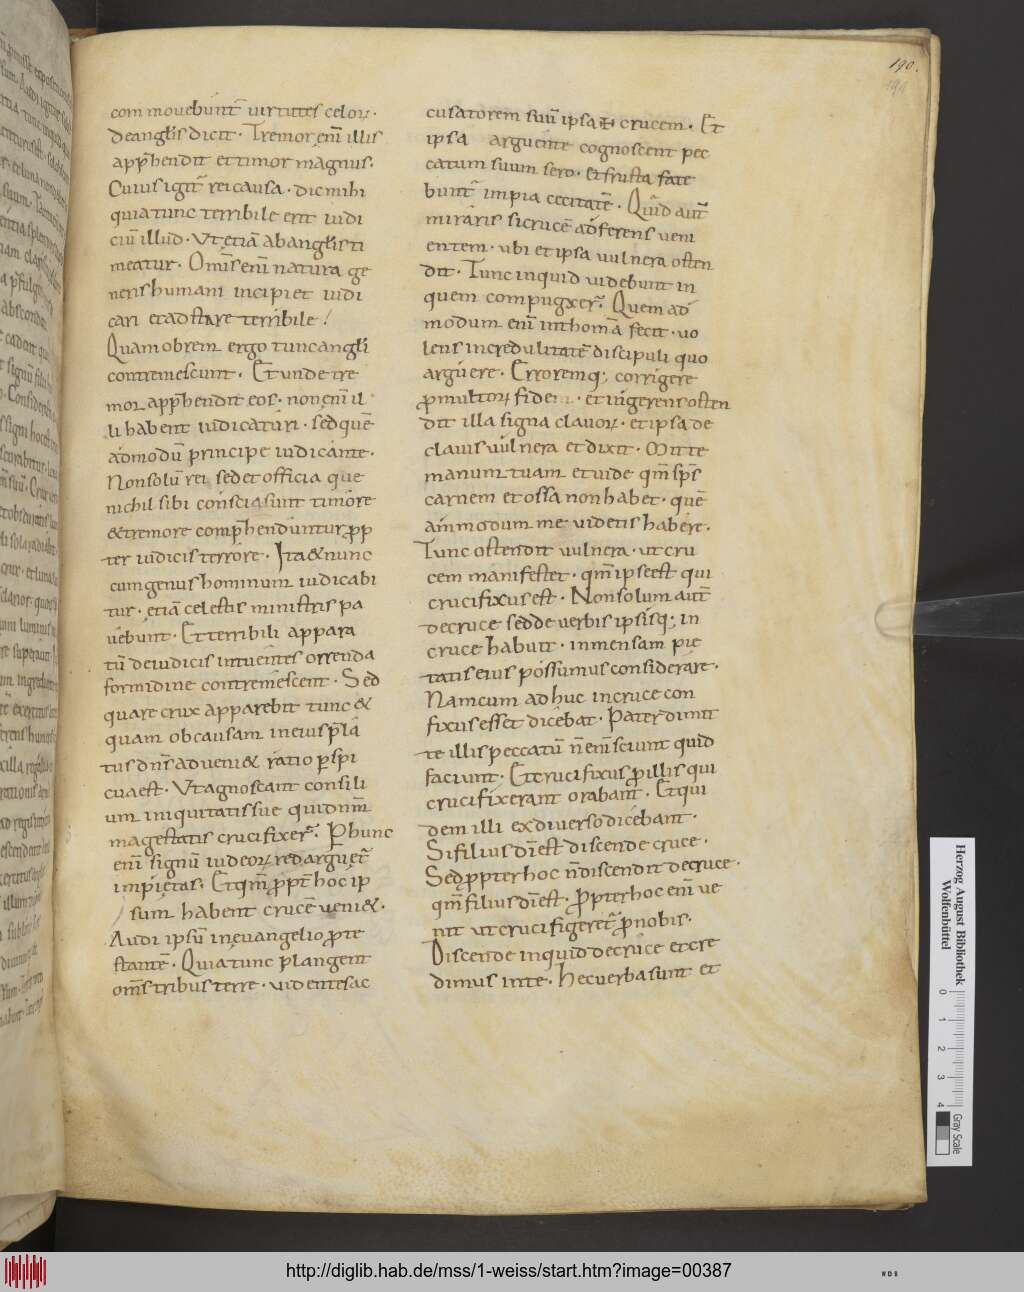 190.
com mouebunt̄ uirtutes celoꝝ·
deangl̄is dicit· Tremor eni᷑ illis
app̄hendit et timor magnus·
Cuius igit̄ rei causa· dic mihi
quia tunc terribile erit iudi
ciū illud· Ut etiā ab angl̄is ti
meatur· Om̄is eni᷑ natura ge
neris humani incipiet iudi
cari et adstare terribile!
Quam obrem ergo tunc angl̄i
contremescunt· Et unde tre
mor app̄hendit eos· non eni᷑ il
li habent iudicaturi· sed quē
admodū principe iudicante·
Non solū rei sed et officia que
nichil sibi conscia sunt timore
& tremore comp̄henduntur ꝓp
ter iudicis terrore· Ita & nunc
cum genus hominum iudicabi
tur· etiā celestis ministris pa
uebunt· Et terribili appara
tū de iudicis intuentes orrenda
formidine contremescent· Sed
quare crux apparebit tunc &
quam ob causam in eius p̄la
tus dn̄s adueni& ratio ꝑspi
cua est· Ut agnoscant consili
um iniquitatis sue qui dnm̄
magestatis crucifixer̄· P hunc
eni᷑ signū iudeoꝝ redarguet̄
impietas· Et qm̄ ꝓpt̄ hoc ip
sum habent crucē ueni&·
Audi ipsū in euangelio ꝓte
stantē· Quia tunc plangent
om̄s tribus terre· uidentes ac
cusatorem suū ipsā crucem· Et
ipsa arguente cognoscent pec
catum suum sero· et frustra fate
bunt̄ impia cecitatē· Quid aut̄
miraris si crucē adferens ueni
entem· ubi et ipsa uulnera osten
dit· Tunc inquid uidebunt in
quem compugxer̄· Quem ad
modum eni᷑ in thomā fecit· uo
lens incredulitatē discipuli quo
arguere· Erroremq; corrigere
ꝓ multoꝝ fidem· et ingerens osten
dit illa signa clauoꝝ· et ipsa de
clauis uulnera et dixit· Mitte
manum tuam et uide qm̄ sp̄s
carnem et ossa non habet· quē
ammodum me uidetis habere·
Tunc ostendit uulnera· ut cru
cem manifestet· qm̄ ipse est qui
crucifixus est· Non solum aut̄
de cruce sed de uerbis ipsisq; in
cruce habuit· inmensam pie
tatis eius possumus considerare·
Nam cum adhuc in cruce con
fixus esset dicebat· Pater dimit
te illis peccatū n̄ eni᷑ sciunt quid
faciunt· Et crucifixus ꝓ illis qui
crucifixerant orabant· Et qui
dem illi ex diuerso dicebant·
Si filius dī est discende cruce·
Sed ꝓpter hoc n̄ discendit de cruce·
qm̄ filius dī est· ꝓpter hoc eni᷑ ue
nit ut crucifigeret̄ ꝓ nobis·
Discende inquid de cruce et cre
dimus in te· Hec uerba sunt et
Herzog August Bibliothek
Wolfenbüttel
0 1 2 3 4
Gray Scale
http://diglib.hab.de/mss/1-weiss/start.htm?image=00387